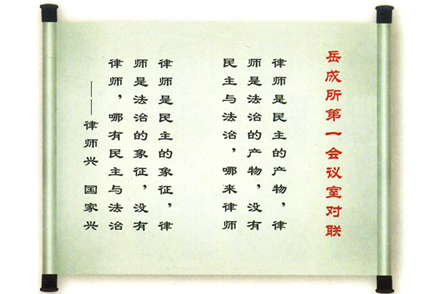 岳成所第一会议室对联
律师是民主的产物，律
师是法治的产物，没有
民主与法治，哪来律师
律师是民主的象征，律
师是法治的象征，没有
律师，哪有民主与法治
——律师兴 国家兴